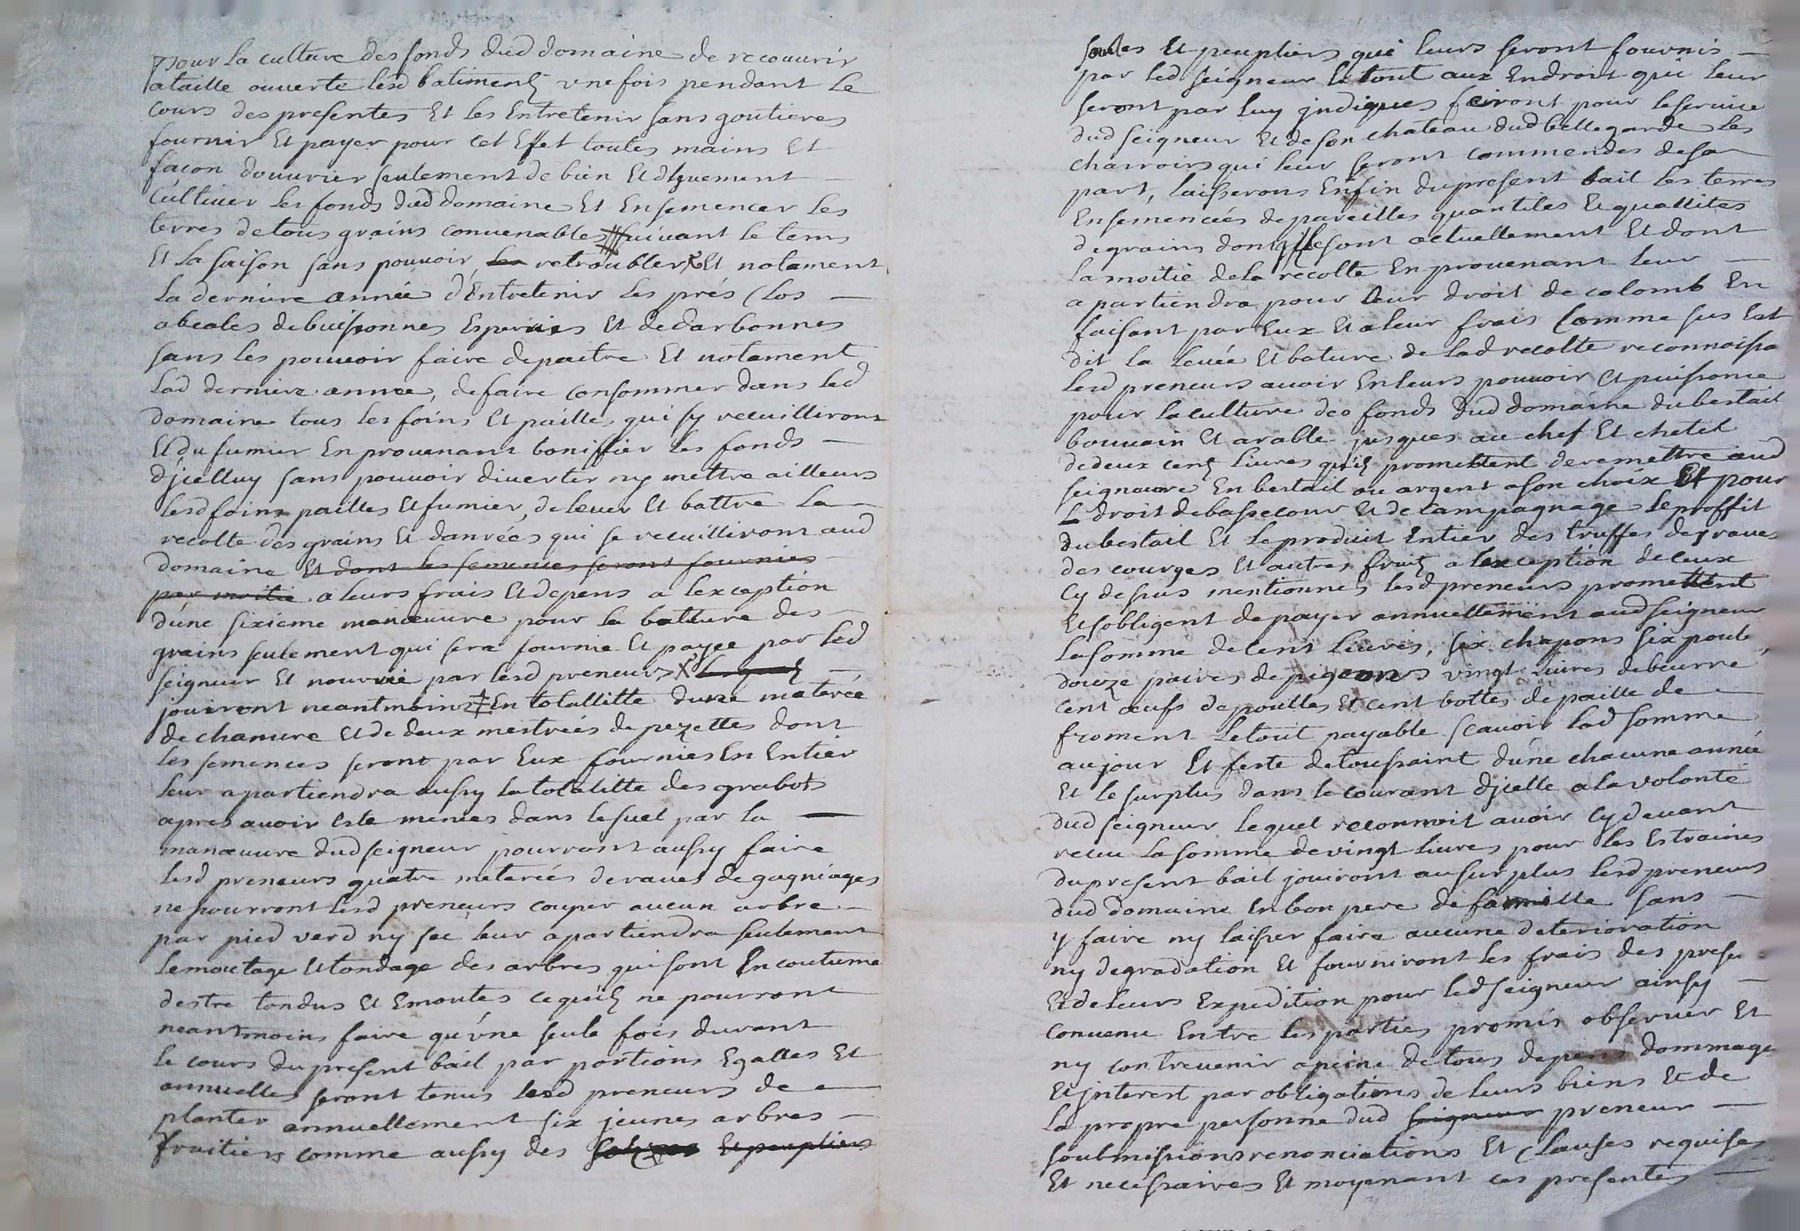 pour la culture des fonds dud domaine de recouvrir
a taille ouverte lesd batiments une fois pendant le
cours des presentes Et les Entretenir sans goutieres
fournir Et payer pour cet Effet toutes mains Et
façon douvrier seulement de bien Et d'huement
Cultiver les fonds dud domaine Et Ensemencer les
terres de tous grains convenables suivant le tems
Et la saison sans pouvoir les retroubler Et notament
la derniere année d'Entretenir les prés Clos
abeales de buissonnes Et de darbonnes
sans les pouvoir faire depaitre Et notament
lad derniere année, de faire consommer dans led
domaine tous les foins Et pailles qui sy recuilliront
Et du fumier En provenant boniffier les fonds
d'jcelluy sans pouvoir divertir ny mettre ailleurs
lesd foins pailles Et fumier, de lever Et battre la
recolte des grains Et danrées qui se recuilliront aud
domaine Et dont les semences seront fournies
par moitié a leurs frais Et depens a lexception
d'une sixieme manœuvre pour la batture des
grains seulement qui sera fournie Et payée par led
seigneur Et nourrie par lesd preneurs
jouiront neantmoins En totallitte dune materée
de chanvre Et de deux mestrées de pezettes dont
les semences seront par Eux fournies En Entier
leur apartiendra aussy la totalitte des grabots
apres avoir Este menées dans le suel par la
manœuvre dud seigneur pourront aussy faire
lesd preneurs quatre meterées de raves de gagniages
ne pourront lesd preneurs couper aucun arbre
par pied verd ny sec leur apartiendra seulement
lemoutage Et tondage des arbres qui sont En coutume
destre tondus Et Emoutes ce qu'ils ne pourront
neantmoins faire qu'une seule fois durant
le cours du present bail par portions Egalles Et
annuelles seront tenus lesd preneurs de
planter annuellement six jeunes arbres
fruitiers comme aussy des Et peupliers
saules Et peupliers qui leurs seront fournis
par led seigneur le tout aux Endroit qui leur
seront par luy jndiques feiront pour le service
dud seigneur Et de son chateau dud bellegarde les
charroirs qui leur seront commendes de sa
part, laisserons Enfin du present bail les terres
Ensemencées de pareilles quantites Et quallites
de grains dont sont actuellement Et dont
la moitié de la recolte En provenant leur
apartiendra pour leur droit de colomb En
faisant par Eux Et a leur frais Comme sus Est
dit la levée Et bature de lad recolte reconnoissa
lesd preneurs avoir En leurs pouvoir Et puissance
pour la culture des fonds dud domaine du bestail
bouvain Et arable jusques au chef Et chetel
de deux cents Livres qu'ils promettent de remettre aud
seigneur En bestail ou argent a son choix Et pour
L droit de bassecour Et de campagnage le proffit
du bestail Et le produit Entier des truffes des raves
des courges Et autres fruits a lexception de ceux
Cy dessus mentionnes lesd preneurs promettent
Et sobligent de payer annuellement aud seigneur
la somme de Cent Livres, six chapons six poule
douze paires de pigeons vingt Livres de beurre,
cent œufs de poulles Et cent bottes de paille de
froment Le tout payable scavoir lad somme
au jour Et feste de toussaint d'une chacune année
Et le surplus dans le courant d'jcelle a la volonté
dud seigneur lequel reconnoit avoir Cy devant
receu la somme de vingt Livres pour les Estraines
du present bail jouiront au surplus lesd preneurs
dud domaine En bon pere de famille sans
y faire ny laisser faire aucune deterioration
ny degradation Et fourniront les frais des prese
Et de leurs Expedition pour led seigneur ainsy
convenu Entre les parties promis observer Et
ny contrevenir a peine de tous depens dommage
Et jnterest par obligations de leurs biens Et de
la propre personne dud seigneur preneur
soubmissions renonciations Et Clauses requises
Et necessaires Et moyenant ces presentes